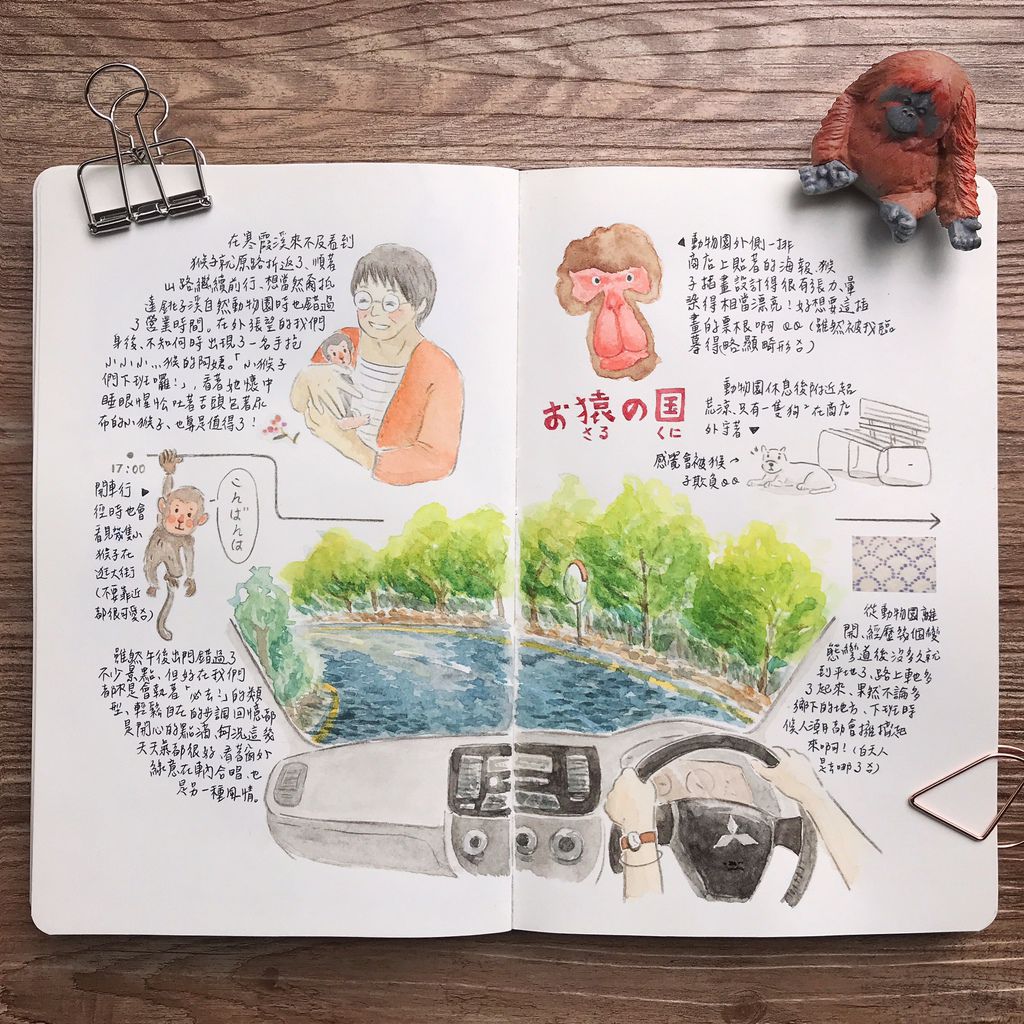 在寒霞溪來不及看到
猴子就原路折返了、順著
山路繼續前行、想當然爾抵
達銚子溪自然動物園時也錯過
了營業時間。在外張望的我們
身後、不知何時出現了一名手抱
小小小...猴的阿嬤。「小猴子
們下班囉!」,看著她懷中
睡眼惺忪吐著舌頭包著尿
布的小猴子、也算是值得了!
17:00
開車行
徑時也會
看見幾隻小
猴子在
逛大街
(不要靠近
都很可愛)
こんばんは
雖然午後出門錯過了
不少景點、但好在我們
都不是會執著「必去!」的類
型、輕鬆自在的步調回憶都
是開心的點滴、何況這幾
天天氣都很好、看著窗外
綠意在車內合唱、也
是另一種風情。
動物園外側一排
商店上貼著的海報、猴
子插畫設計得很有張力、暈
染得相當漂亮!好想要這插
畫的票根啊QQ(雖然被我臨
摹得略顯畸形)
お猿の国
さる くに
動物園休息後附近超
荒涼、只有一隻狗在商店
外守著
感覺會被猴
子欺負QQ
從動物園離
開、經歷幾個變
態彎道後沒多久就
到平地了、路上車也多
了起來、果然不論多
鄉下的地方、下班時
候人潮都會擁擠起
來啊!(白天人
是去哪了)